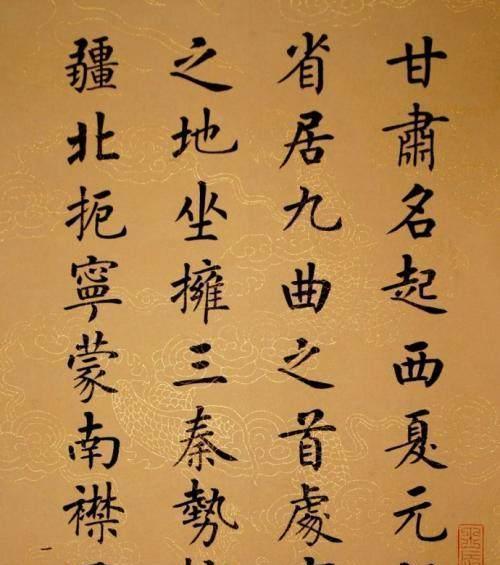 甘肅名起西夏元
省居九曲之首處
之地坐擁三秦勢
疆北扼寧蒙南襟